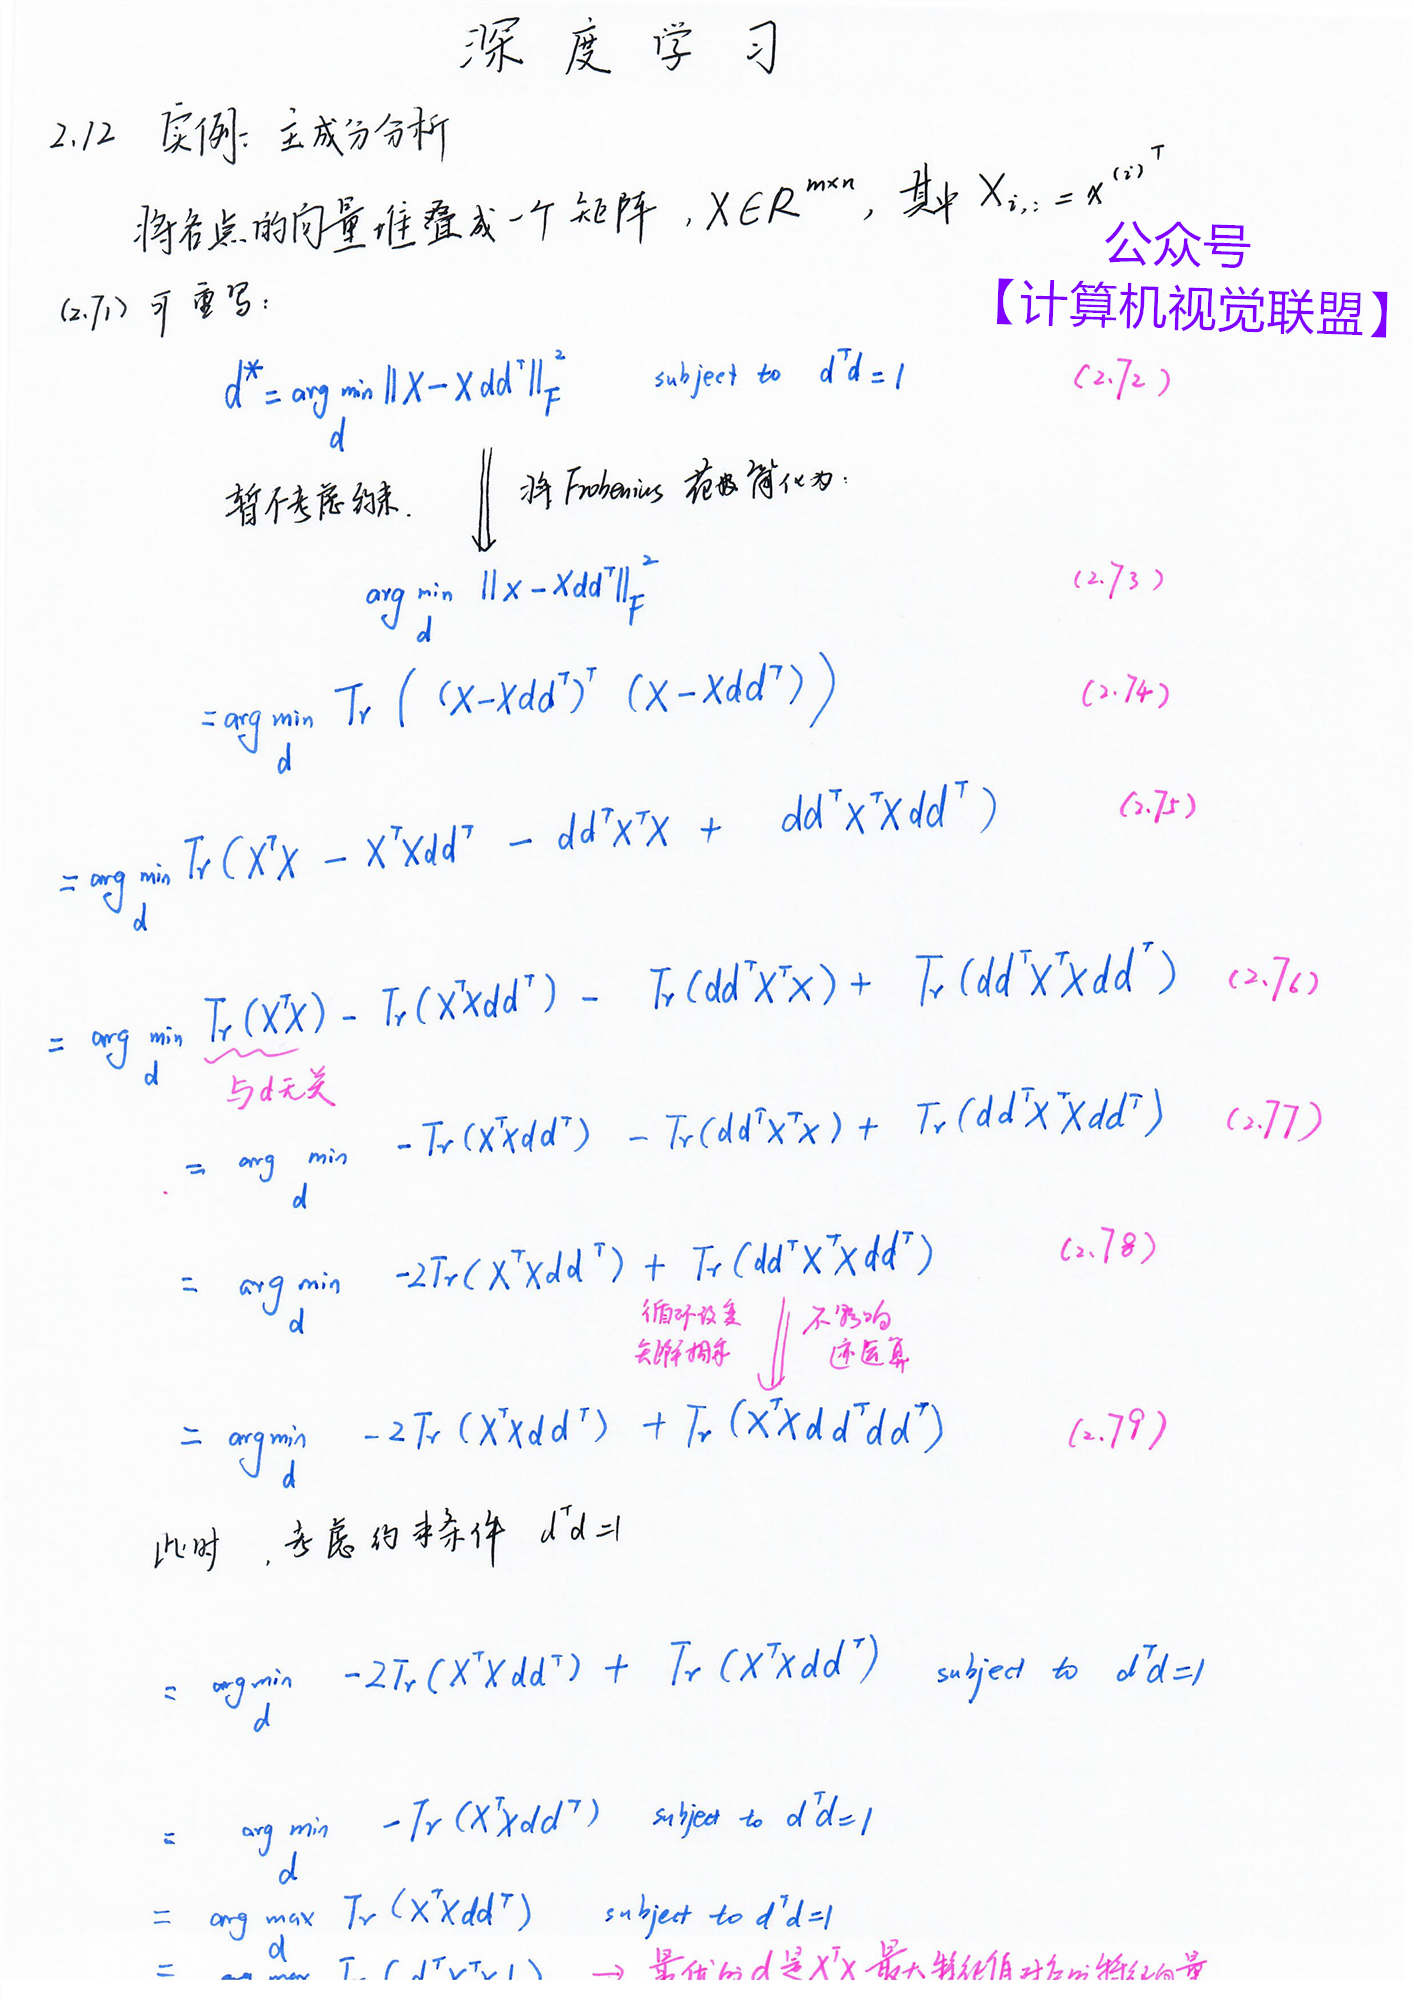 深度学习
2.12 实例: 主成分分析
将各点的向量堆叠成一个矩阵, X∈R^{m×n}, 其中 X_{i,:} = x^{(i)T}
公众号
【计算机视觉联盟】
(2.71) 可重写:
d* = arg min_d ||X - Xdd^T||_F^2 subject to d^Td = 1 (2.72)
暂不考虑约束. 将 Frobenius 范数简化为:
arg min_d ||X - Xdd^T||_F^2 (2.73)
= arg min_d Tr((X - Xdd^T)^T (X - Xdd^T)) (2.74)
= arg min_d Tr(X^TX - X^TXdd^T - dd^TX^TX + dd^TX^TXdd^T) (2.75)
= arg min_d Tr(X^TX) - Tr(X^TXdd^T) - Tr(dd^TX^TX) + Tr(dd^TX^TXdd^T) (2.76)
与d无关
= arg min_d -Tr(X^TXdd^T) - Tr(dd^TX^TX) + Tr(dd^TX^TXdd^T) (2.77)
= arg min_d -2Tr(X^TXdd^T) + Tr(dd^TX^TXdd^T) (2.78)
循环改变 不影响
矩阵相乘 迹运算
= arg min_d -2Tr(X^TXdd^T) + Tr(X^TXdd^Tdd^T) (2.79)
此时, 考虑约束条件 d^Td = 1
= arg min_d -2Tr(X^TXdd^T) + Tr(X^TXdd^T) subject to d^Td = 1
= arg min_d -Tr(X^TXdd^T) subject to d^Td = 1
= arg max_d Tr(X^TXdd^T) subject to d^Td = 1
= arg max Tr(d^TX^TXd) → 最优的d是X^TX最大特征值对应的特征向量